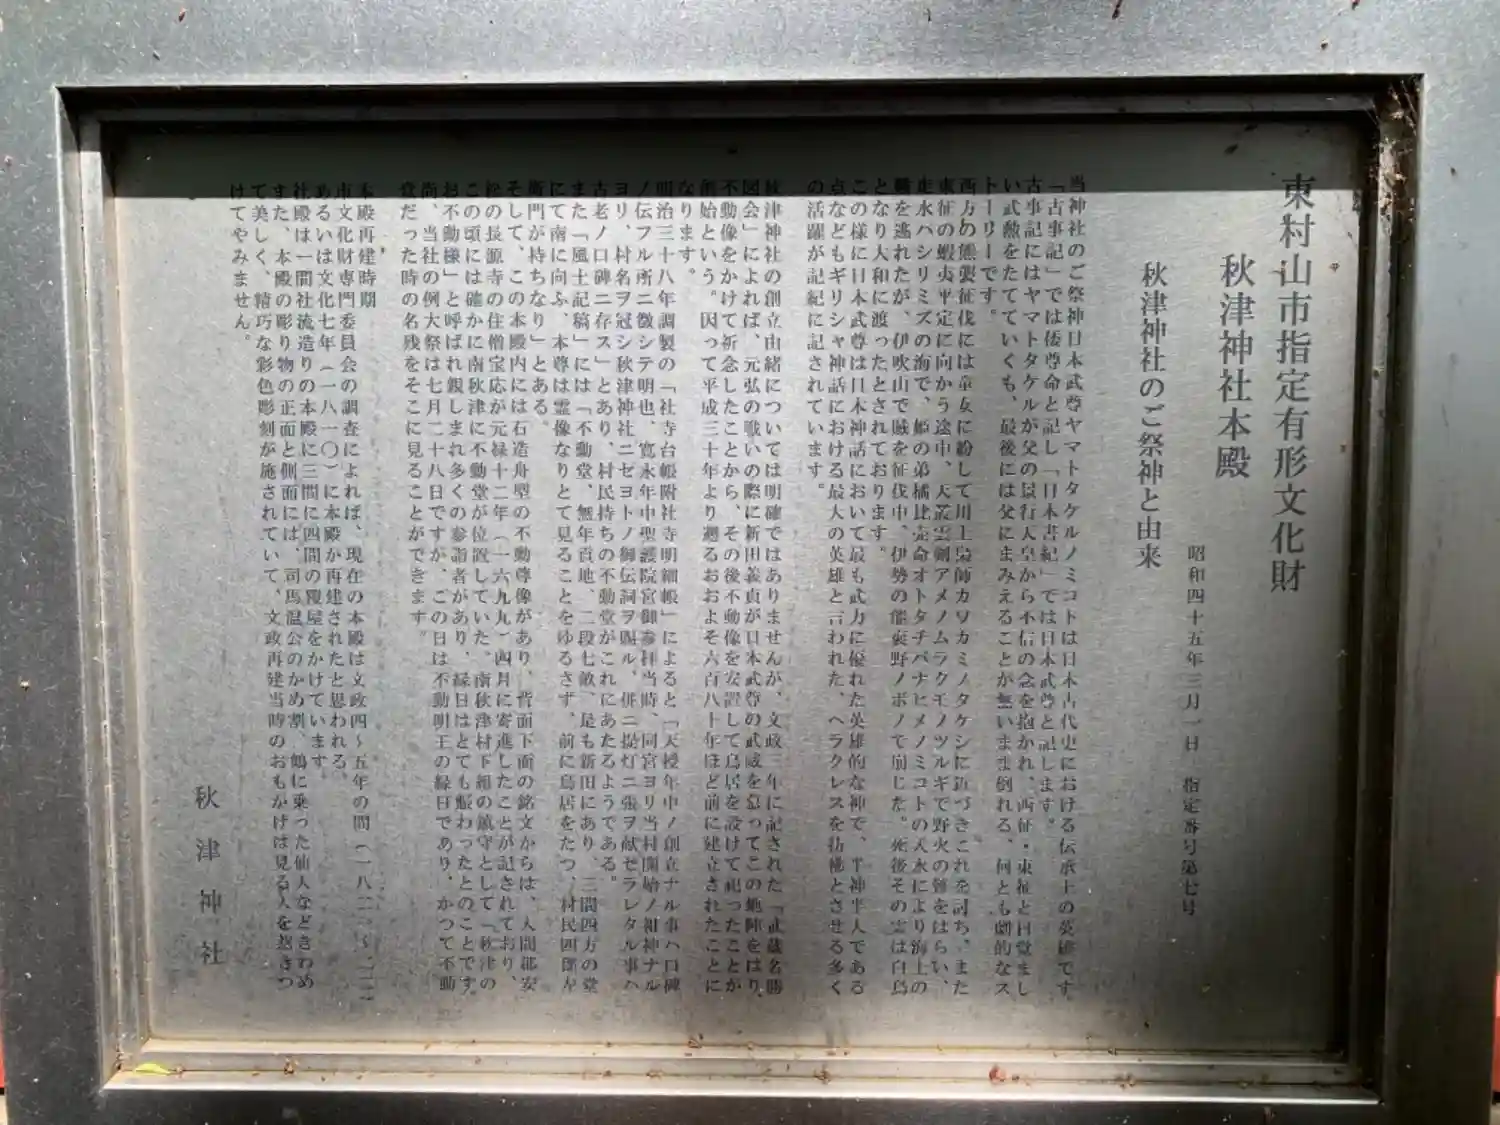 東村山市指定有形文化財
秋津神社本殿
昭和四十五年三月一日 指定番号第七号
秋津神社のご祭神と由来
当神社のご祭神日本武尊ヤマトタケルノミコトは日本古代史における伝承上の英雄です。
「古事記」では倭尊命と記し「日本書紀」では日本武尊と記します。
古事記にはヤマトタケルが父の景行天皇から不信の念を抱かれ、西征・東征と目覚まし
い武勲をたてていくも、最後には父にまみえることが無いまま倒れる、何とも劇的なス
トーリーです。
西方の熊襲征伐には童女に紛して川上梟師カワカミノタケシに近づきこれを討ち、また
東征の蝦夷平定に向かう途中、天叢雲剣アメノムラクモノツルギで野火の難をはらい、
走水ハシリミズの海で、姫の弟橘比売命オトタチバナヒメノミコトの入水により海上の
難を逃れたが、伊吹山で賊を征伐中、伊勢の能褒野ノボノで崩じた。死後その霊は白鳥
となり大和に渡ったとされております。
この様に日本武尊は日本神話において最も武力に優れた英雄的な神で、半神半人である
点などもギリシャ神話における最大の英雄と言われた、ヘラクレスを彷彿とさせる多く
の活躍が記紀に記されています。
秋津神社の創立由緒については明確ではありませんが、文政三年に記された「武蔵名勝
図会」によれば、元弘の戦いの際に新田義貞が日本武尊の武威を慕ってこの地陣をはり、
不動像をかけて祈念したことから、その後不動像を安置して鳥居を設けて祀ったことが
創始という。因って平成三十年より遡るおおよそ六百八十年ほど前に建立されたことに
なります。
明治三十八年調製の「社寺台帳附社寺明細帳」によると「天授年中ノ創立ナル事ハ口碑
ノ伝フル所ニ徴シテ明也、寛永年中聖護院宮御参拝当時、同宮ヨリ当村開始ノ祖神ナル
ヨリ、村名ヲ冠シ秋津神社ニゼヨトノ御伝詞ヲ賜ル、併ニ提灯ニ張ヲ献ゼラレタル事ハ
古老ノ口碑ニ存ス」とあり、村民持ちの不動堂がこれにあたるようである。
また「風土記稿」には「不動堂、無年貢地、二段七畝、是も新田にあり、三間四方の堂
にて南に向ふ、本尊は霊像なりとて見ることをゆるさず、前に鳥居をたつ、村民四郎左
衛門が持ちなり」とある。
そして、この本殿内には石造舟型の不動尊像があり、背面下面の銘文からは、入間郡安
松の長源寺の住僧宝応が元禄十二年（一六九九）四月に寄進したことが記されており、
この頃には確かに南秋津に不動堂が位置していた、南秋津村下組の鎮守として「秋津の
お不動様」と呼ばれ親しまれ多くの参詣者があり、縁日はとても賑わったとのことです。
尚、当社の例大祭は七月二十八日ですが、この日は不動明王の縁日であり、かつて不動
堂だった時の名残をそこに見ることができます。
本殿再建時期
市文化財専門委員会の調査によれば、現在の本殿は文政四～五年の間（一八二一～二二）
あるいは文化七年（一八一〇）に本殿が再建されたと思われる。
社殿は一間社流造りの本殿に三間に四間の覆屋をかけています。
また、本殿の彫り物の正面と側面には、司馬温公のかめ割、鶴に乗った仙人などきわめ
て美しく、精巧な彩色彫刻が施されていて、文政再建当時のおもかげは見る人を惹きつ
けてやみません。
秋津神社